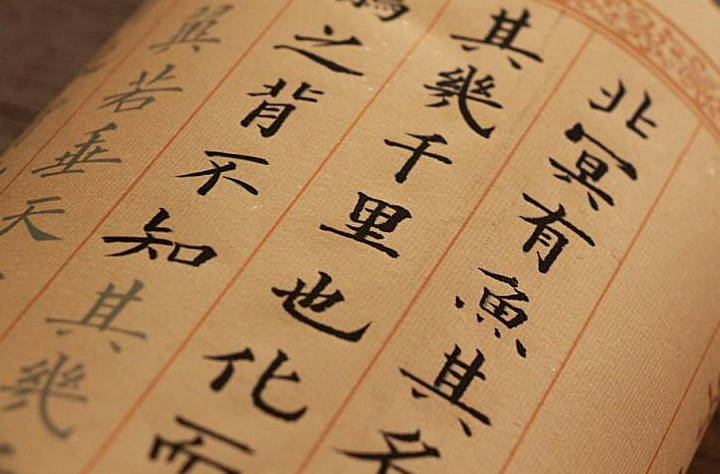 北冥有魚其名
其幾千里也化而
之背不知其幾
翼若垂天